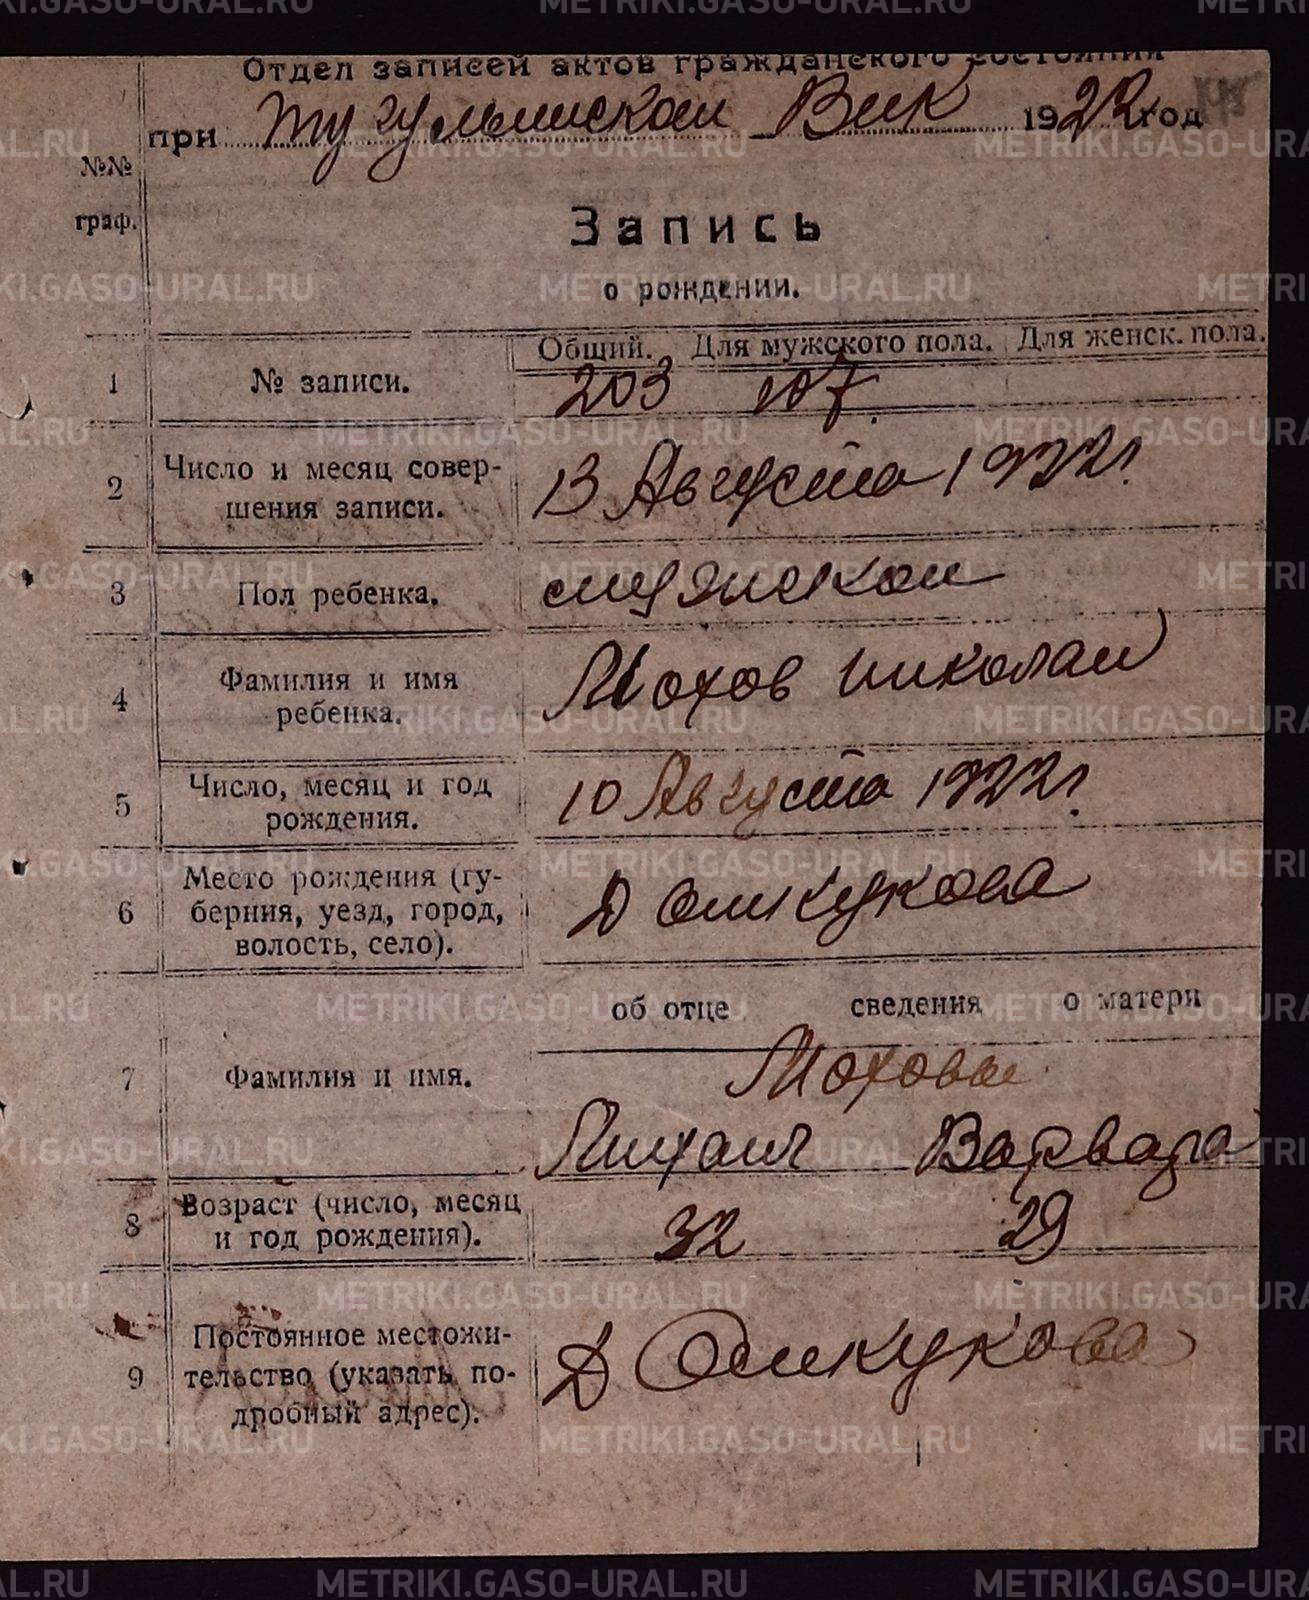 Отдел записей актов гражданского состояния
при Тугулымском Вик 1922 год
№№
граф.
Запись
о рождении.
Общий. Для мужского пола. Для женск. пола.
1 № записи. 203 107
2 Число и месяц совер-
шения записи. 13 Августа 1922 г.
3 Пол ребенка. мужской
4 Фамилия и имя
ребенка. Мохов Николай
5 Число, месяц и год
рождения. 10 Августа 1922 г.
6 Место рождения (гу-
берния, уезд, город,
волость, село). Д
об отце сведения о матери
7 Фамилия и имя. Моховы
Михаил Варвара
8 Возраст (число, месяц
и год рождения). 32 29
9 Постоянное местожи-
тельство (указать по-
дробный адрес). Д
METRIKI.GASO-URAL.RU